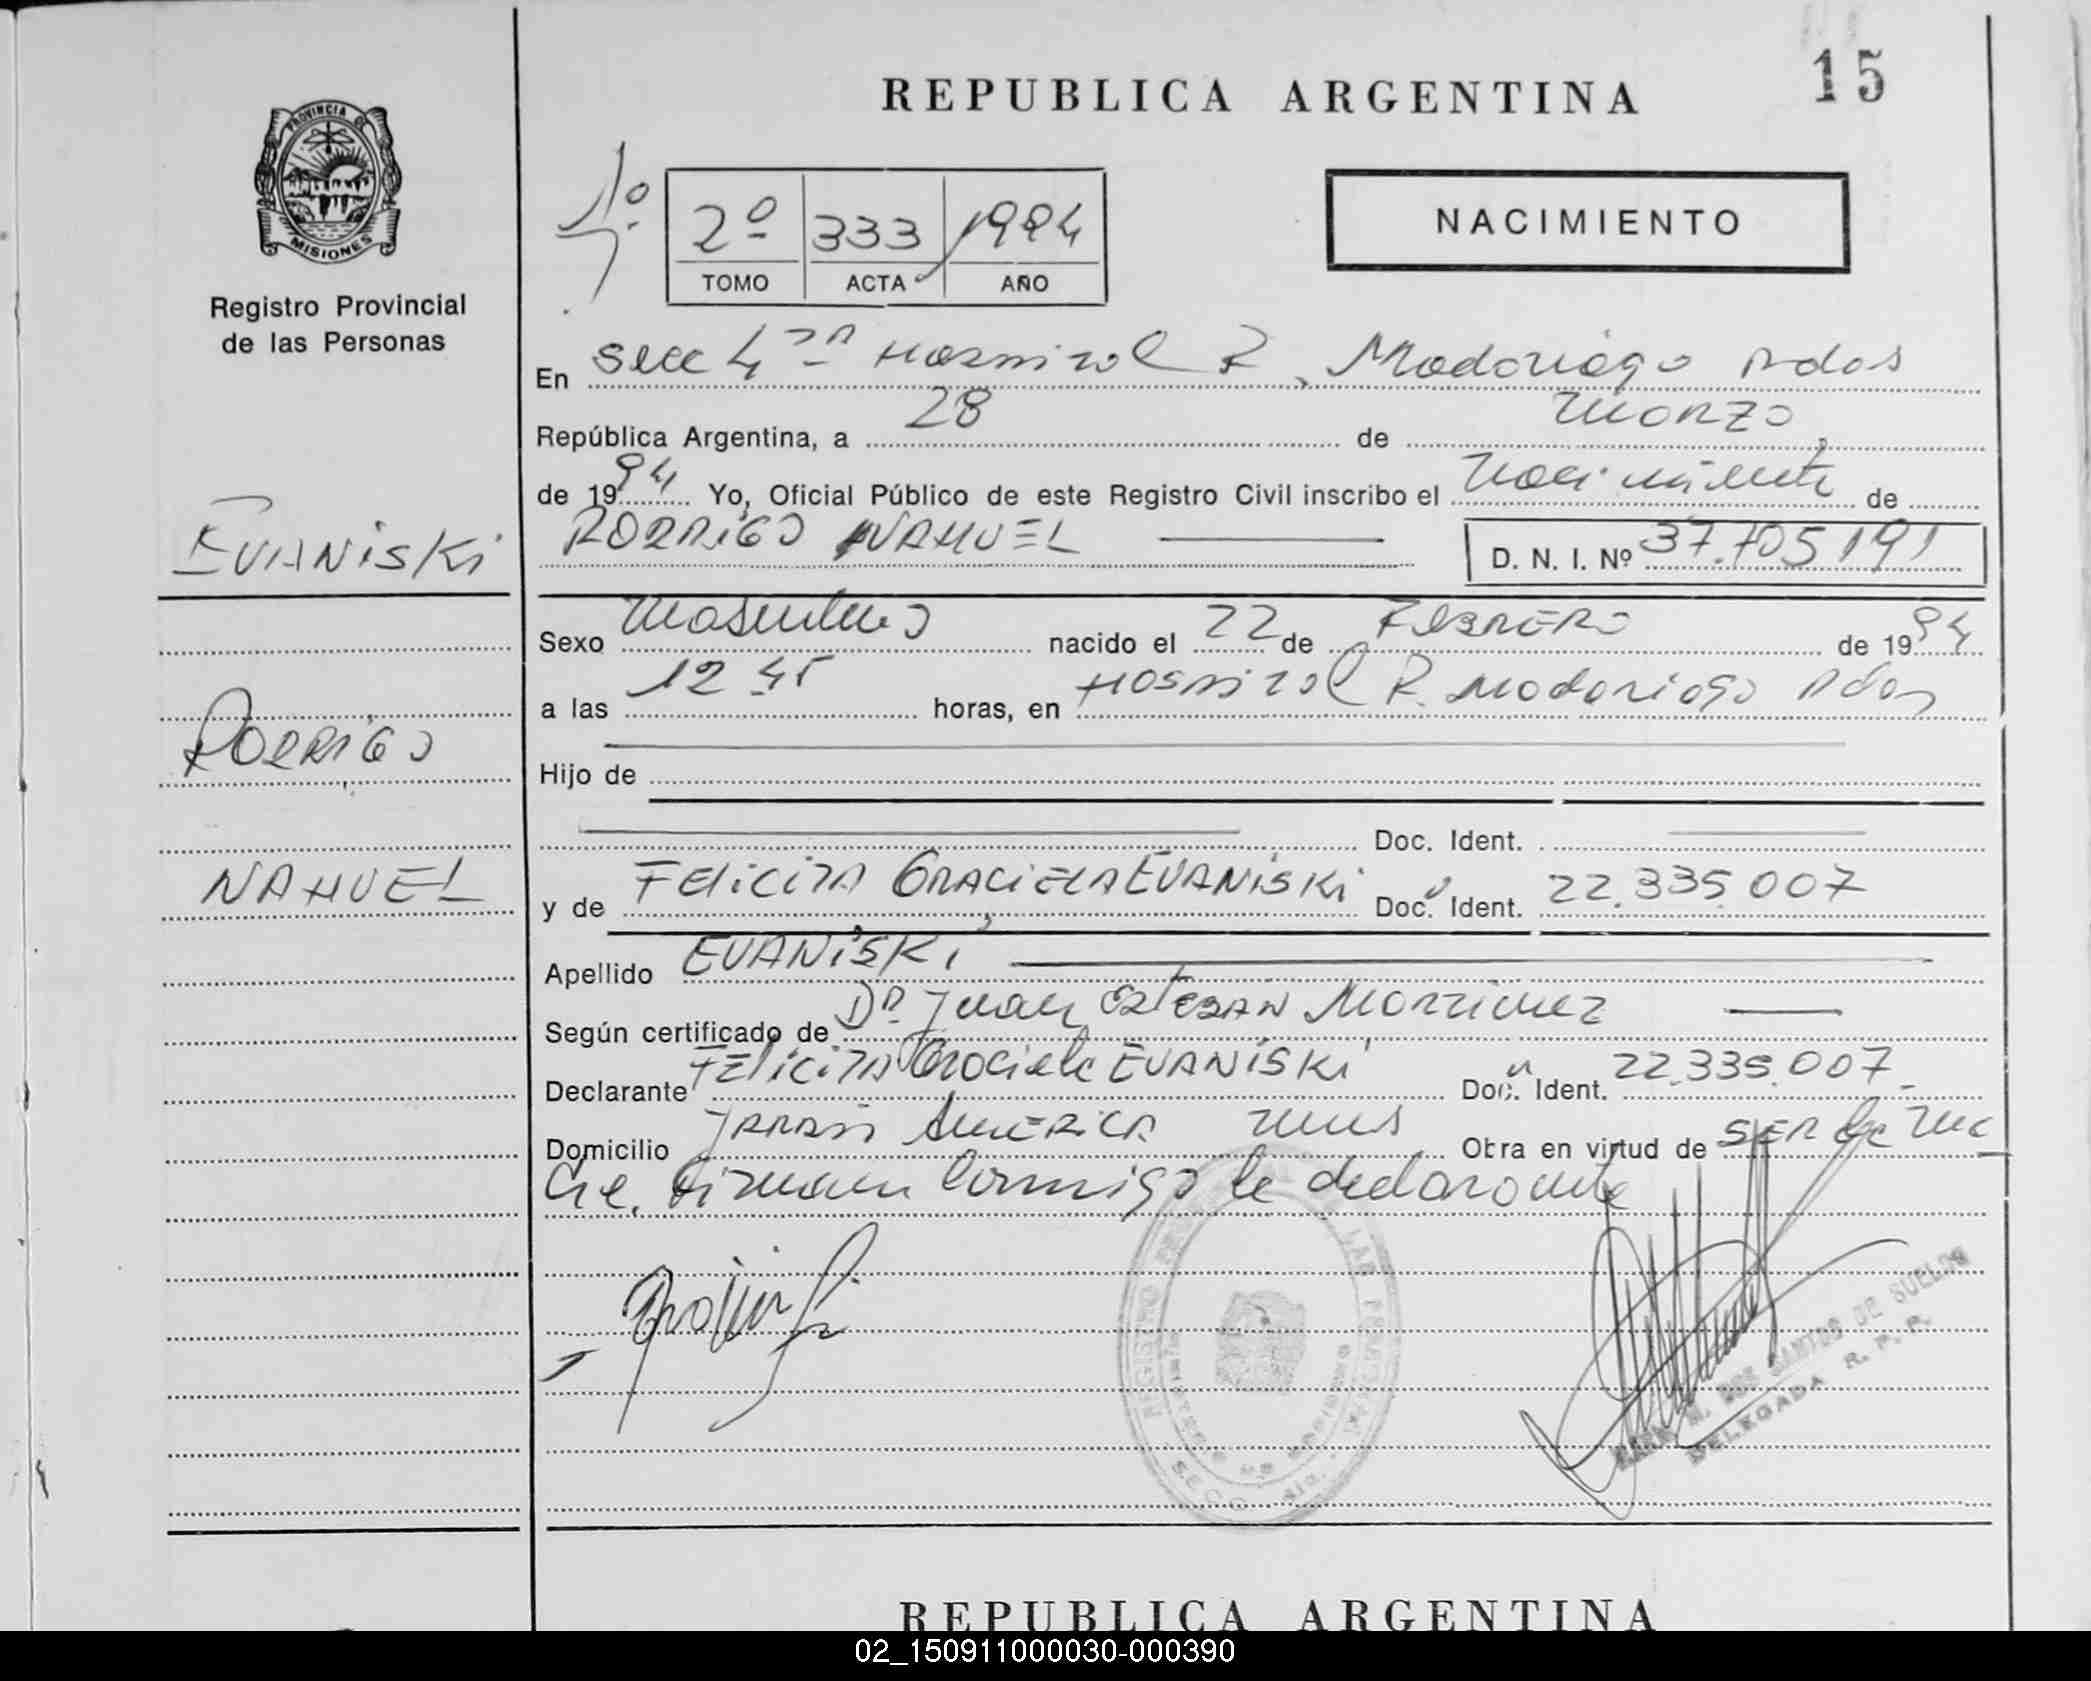 REPUBLICA ARGENTINA
15
PROVINCIA DE
MISIONES
Registro Provincial
de las Personas
1º
2º 333 1994
TOMO ACTA AÑO
NACIMIENTO
En Secc 4ta Hospital R. Madariaga Pdas
República Argentina, a 28 de Marzo
de 1994 Yo, Oficial Público de este Registro Civil inscribo el Nacimiento de
RODRIGO NAHUEL D. N. I. Nº 37.705191
EVANiSKi
RODRIGO
NAHUEL
Sexo Masculino nacido el 22 de FEBRERO de 1994
a las 12 45 horas, en Hospital R. Madariaga Pdas
Hijo de
Doc. Ident.
y de FEliCiTA GRACiELA EVANiSKi Doc. Ident. 22.335.007
Apellido EVANiSKi
Según certificado de Dr. Juan ESTEBAN Martinez
Declarante FEliCiTA Graciela EVANiSKi Doc. Ident. 22.335.007
Domicilio JARDiN AMERiCA Mnes Obra en virtud de SER la Ma
dre. Firman conmigo la declarante
REGISTRO PROVINCIAL DE LAS PERSONAS
SECC 4ta.
DOS SANTOS DE SUELDO
DELEGADA R. P. P.
REPUBLICA ARGENTINA
02_150911000030-000390